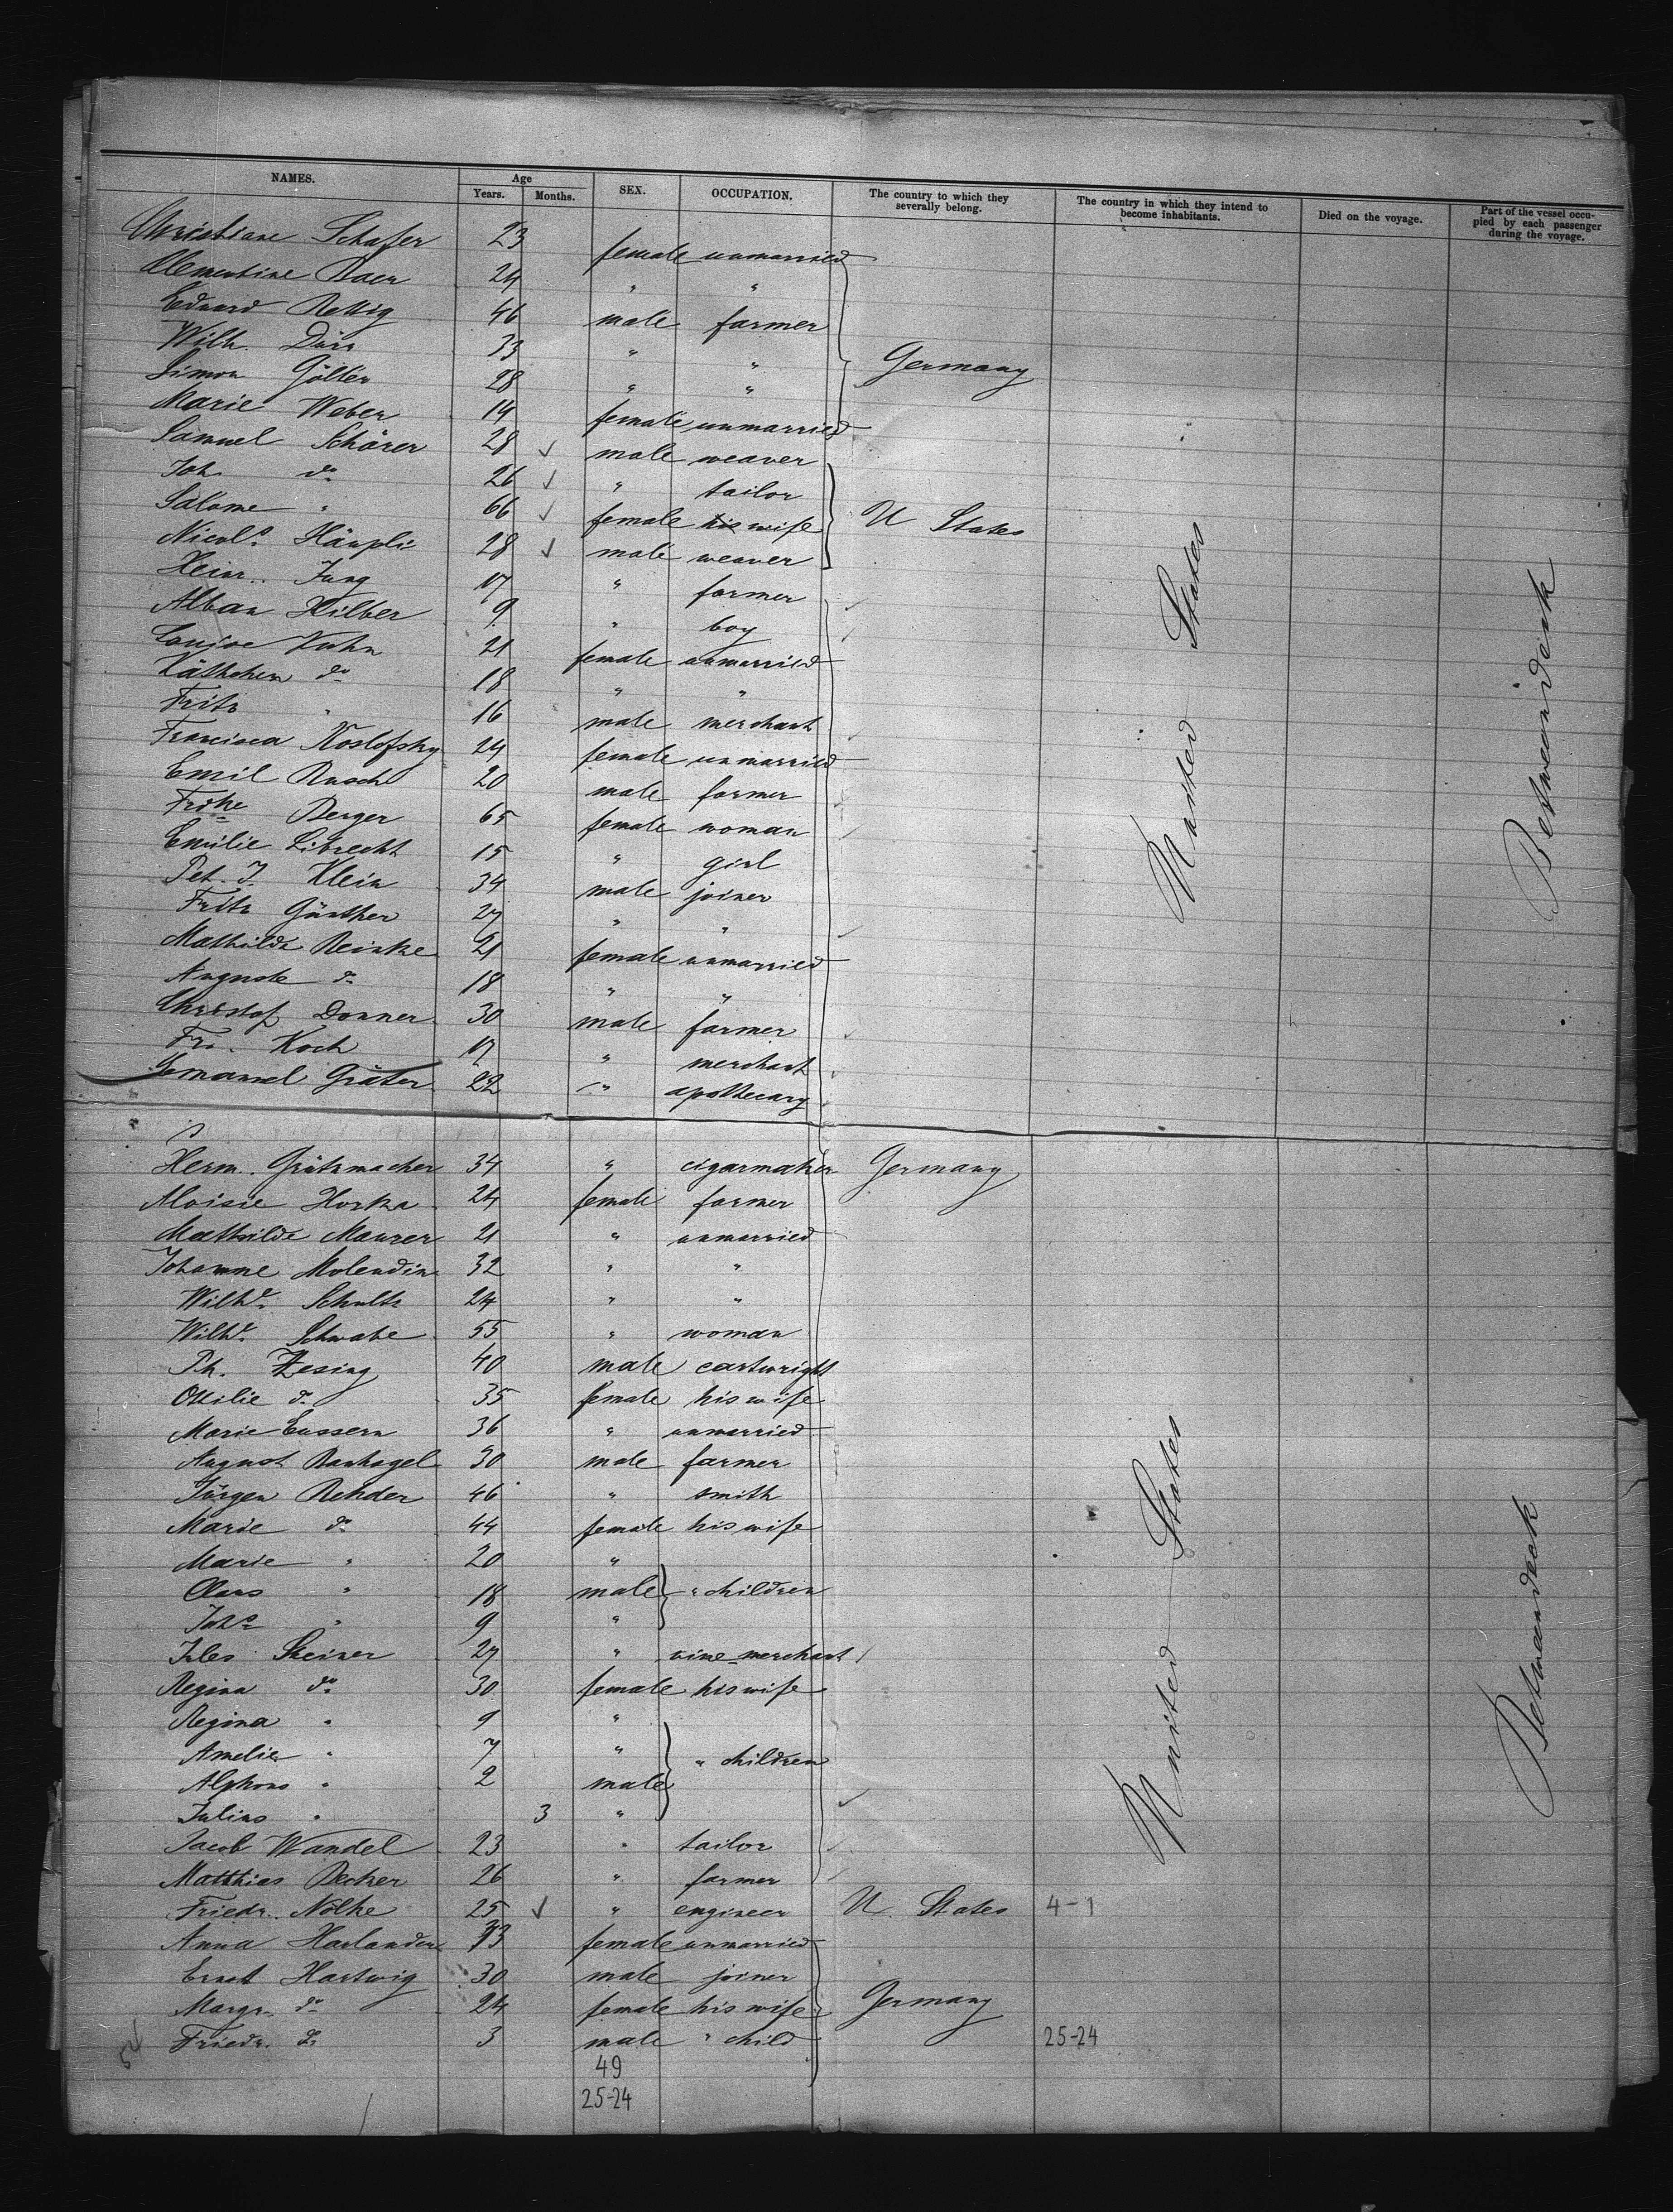 NAMES. Age Years. Months. SEX. OCCUPATION. The country to which they severally belong. The country in which they intend to become inhabitants. Died on the voyage. Part of the vessel occupied by each passenger during the voyage.
Christiane Schafer 23 female unmarried
Clementine Baer 24 " "
Eduard Rettig 46 male farmer
Wilh. Dürr 33 " " Germany
Simon Göller 28 " "
Marie Weber 14 female unmarried
Samuel Schärer 28 ✓ male weaver
Joh. do 26 ✓ " tailor
Salome " 66 ✓ female his wife U States
Nicols. Häuplі 28 ✓ male weaver
Heinr. Jung 17 " farmer
Alban Hilber 9 " boy
Louise Kuhn 21 female unmarried
Käthchen do 18 " "
Fritz " 16 male merchant
Francisca Koslofsky 24 female unmarried
Emil Rusch 20 male farmer
Frdke Berger 65 female woman
Emilie Librecht 15 " girl
Pet. J. Klein 34 male joiner
Fritz Günther 27 " "
Mathilde Reinke 21 female unmarried
Auguste do 18 " "
Christof Donner 30 male farmer
Fr. Koch 17 " merchant
Emanuel Gräter 22 " apothecary
United States
Betweendeck
Herm. Grützmacher 34 " cigarmaker Germany
Aloisie Horka 24 female farmer
Mathilde Maurer 21 " unmarried
Johanne Molendin 32 " "
Wilhe. Schultz 24 " "
Wilhe. Schwabe 55 " woman
Ph. Zesing 40 male cartwright
Ottilie do 35 female his wife
Marie Eussern 36 " unmarried
August Banhagel 30 male farmer
Jürgen Rehder 46 " smith
Marie do 44 female his wife
Marie " 20 "
Claus " 18 male " children
Johs " 9 "
Jules Steiner 27 " vine-merchant
Regina do 30 female his wife
Regina " 9 "
Amelie " 7 " " children
Alphons " 2 male
Julius " 3 "
Jacob Wandel 23 " tailor
Matthias Becker 26 " farmer
Friedr. Nölke 25 ✓ " engineer U. States 4-1
Anna Harlander 33 female unmarried
Ernst Hartwig 30 male joiner
Margr. do 24 female his wife Germany
Friedr. do 3 male " child 25-24
49
25-24
United States
Betweendeck